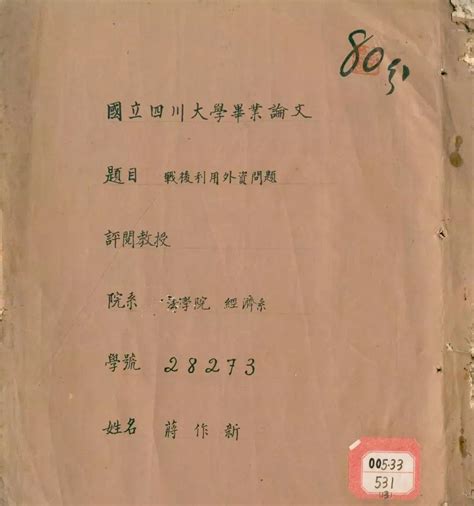 80分
國立四川大學畢業論文
題目 戰後利用外資問題
評閱教授
院系 法學院 經濟系
學號 28273
姓名 蔣作新
005·33
531